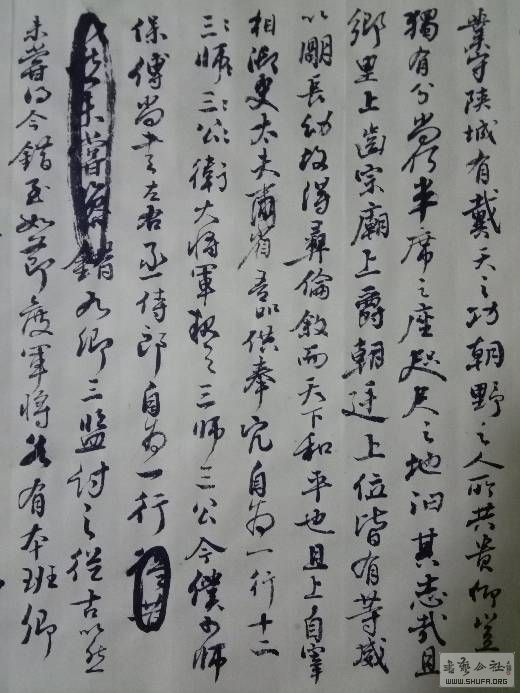 業守陝城有戴天之功朝野之人所共貴仰豈
獨有分尚何半席之座咫尺之地汩其志哉且
鄉里上齒宗廟上爵朝廷上位皆有等威
以明長幼故得彝倫敘而天下和平也且上自宰
相御史大夫兩省五品供奉官自為一行十二
三師三公衛大將軍次之三師三公令僕少師
保傅尚書左右丞侍郎自為一行
未嘗參錯九卿三監對之從古以然
未嘗參錯至如節度軍將各有本班卿
书艺公社
WWW.SHUFA.ORG